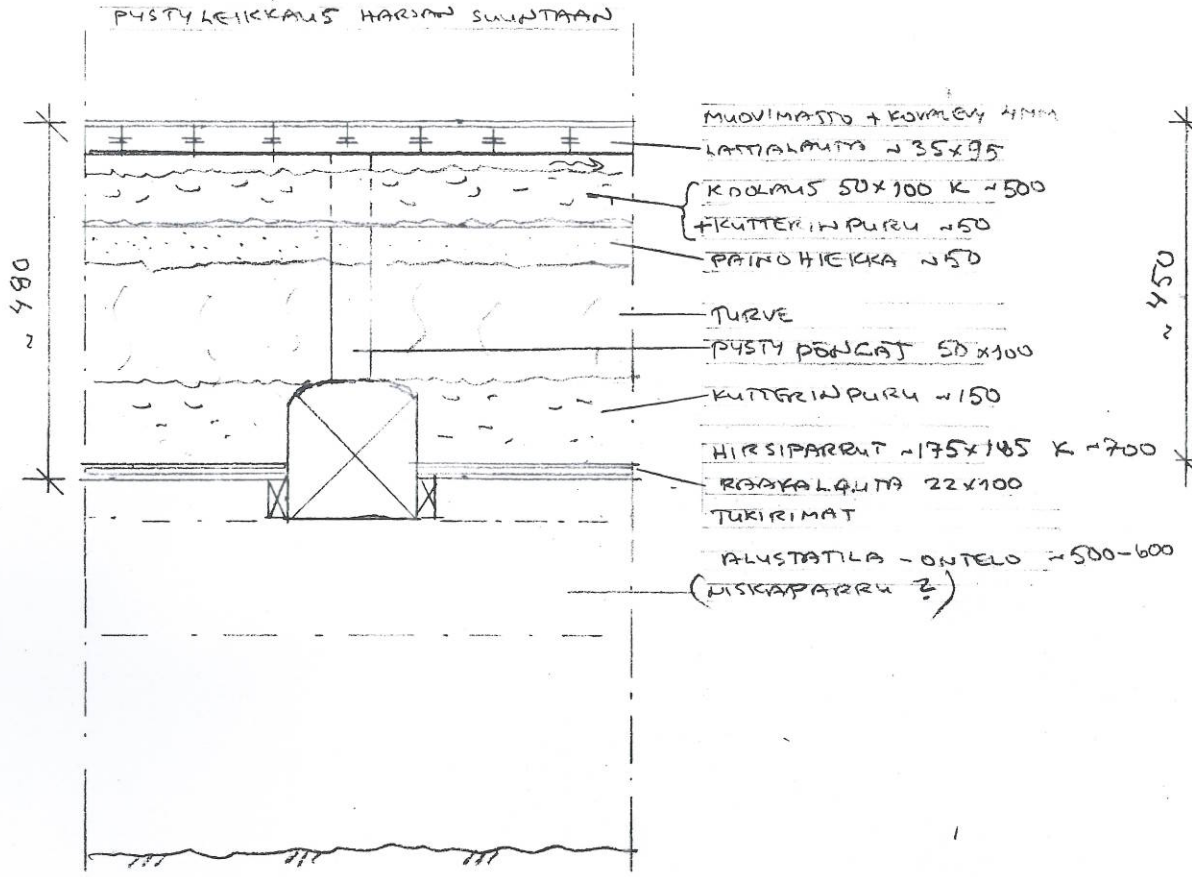 PYSTYLEIKKAUS HARJAN SUUNTAAN
MUOVIMATTO + KOVALEVY 4MM
LATTIALAUTA ~ 35x95
KOOLAUS 50x100 K ~500
+KUTTERINPURU ~50
PAINOHIEKKA ~50
TURVE
PYSTY PÖNGÄT 50x100
KUTTERINPURU ~150
HIRSIPARRUT ~175x185 K ~700
RAAKALAUTA 22x100
TUKIRIMAT
ALUSTATILA - ONTELO ~500-600
(NISKAPARRU ?)
~ 480
~ 450